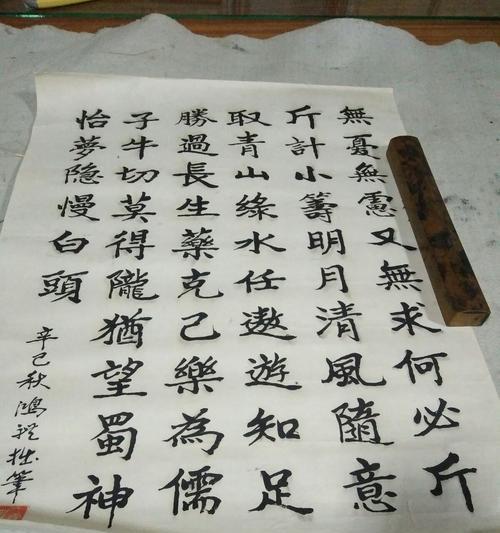 無憂無慮又無求何必斤
斤計小籌明月清風隨意
取青山綠水任遨遊知足
勝過長生藥克己樂為儒
子牛切莫得隴猶望蜀神
怡夢隐慢白頭
辛巳秋鴻拙筆